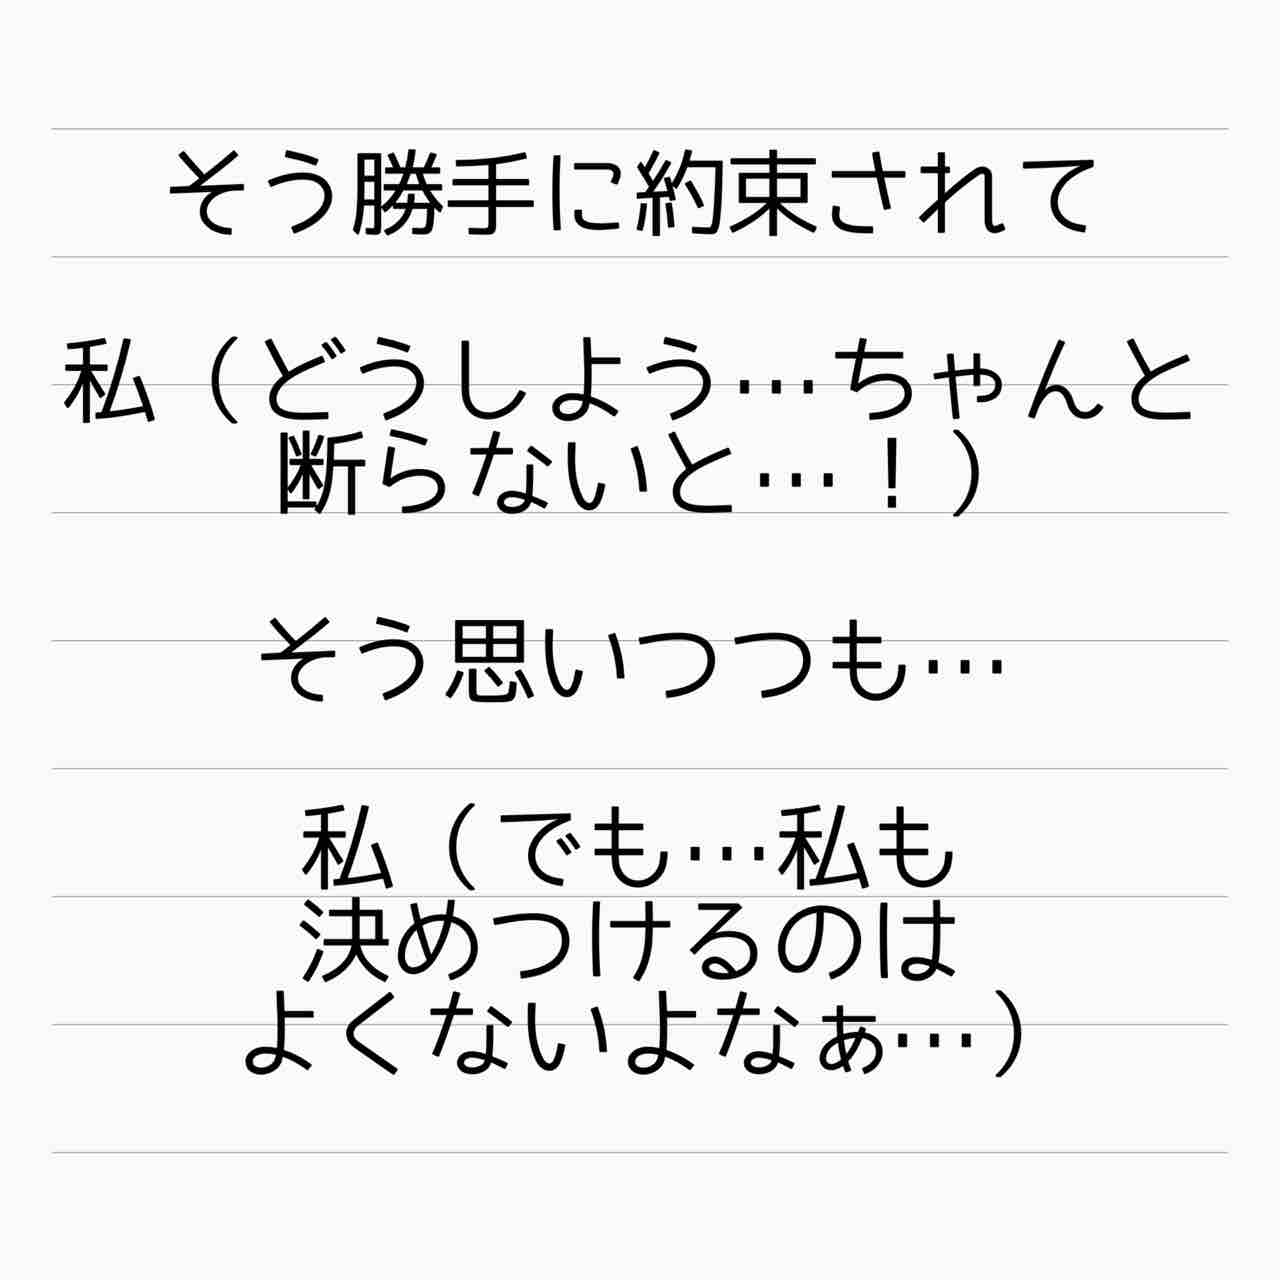 そう勝手に約束されて
私（どうしよう…ちゃんと
断らないと…！）
そう思いつつも…
私（でも…私も
決めつけるのは
よくないよなぁ…）